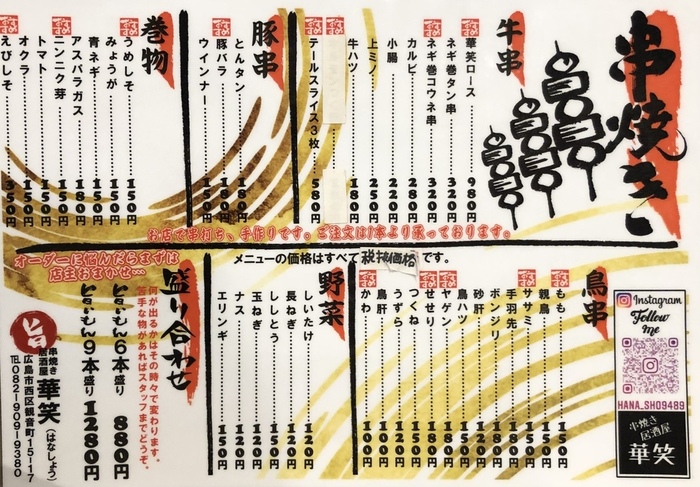 串焼き
牛串
華笑ロース 980円
ネギ巻タン串 320円
おすすめ ネギ巻コウネ串 320円
カルビ 280円
小腸 220円
上ミノ 250円
牛ハツ 180円
おすすめ テールスライス3枚 580円
豚串
とんタン 180円
豚バラ 150円
ウインナー 150円
巻物
おすすめ うめしそ 150円
みょうが 150円
青ネギ 150円
アスパラガス 180円
おすすめ ニンニク芽 150円
トマト 150円
オクラ 150円
おすすめ えびしそ 350円
お店で串打ち、手作りです。ご注文は1本より承っております。
メニューの価格はすべて税抜価格です。
鳥串
もも 150円
親鳥 150円
おすすめ ササミ 150円
手羽先
ボンジリ
砂肝
鳥ハツ
おすすめ ヤゲン
おすすめ せせり
つくね
うずら
鳥肝 100円
かわ 100円
野菜
しいたけ 120円
長ねぎ 120円
ししとう 120円
玉ねぎ 120円
ナス 150円
エリンギ 150円
オーダーに悩んだらまずは
店主おまかせ…
盛り合わせ
何が出るかはその時々で変わります。
苦手な物があればスタッフまでどうぞ。
旨いもん6本盛り 880円
旨いもん9本盛り 1280円
旨
串焼き
居酒屋
華笑(はなしょう)
広島市西区観音町15-17
TEL082-909-9380
Instagram
Follow
me
HANA_SHO9489
串焼き
居酒屋
華笑